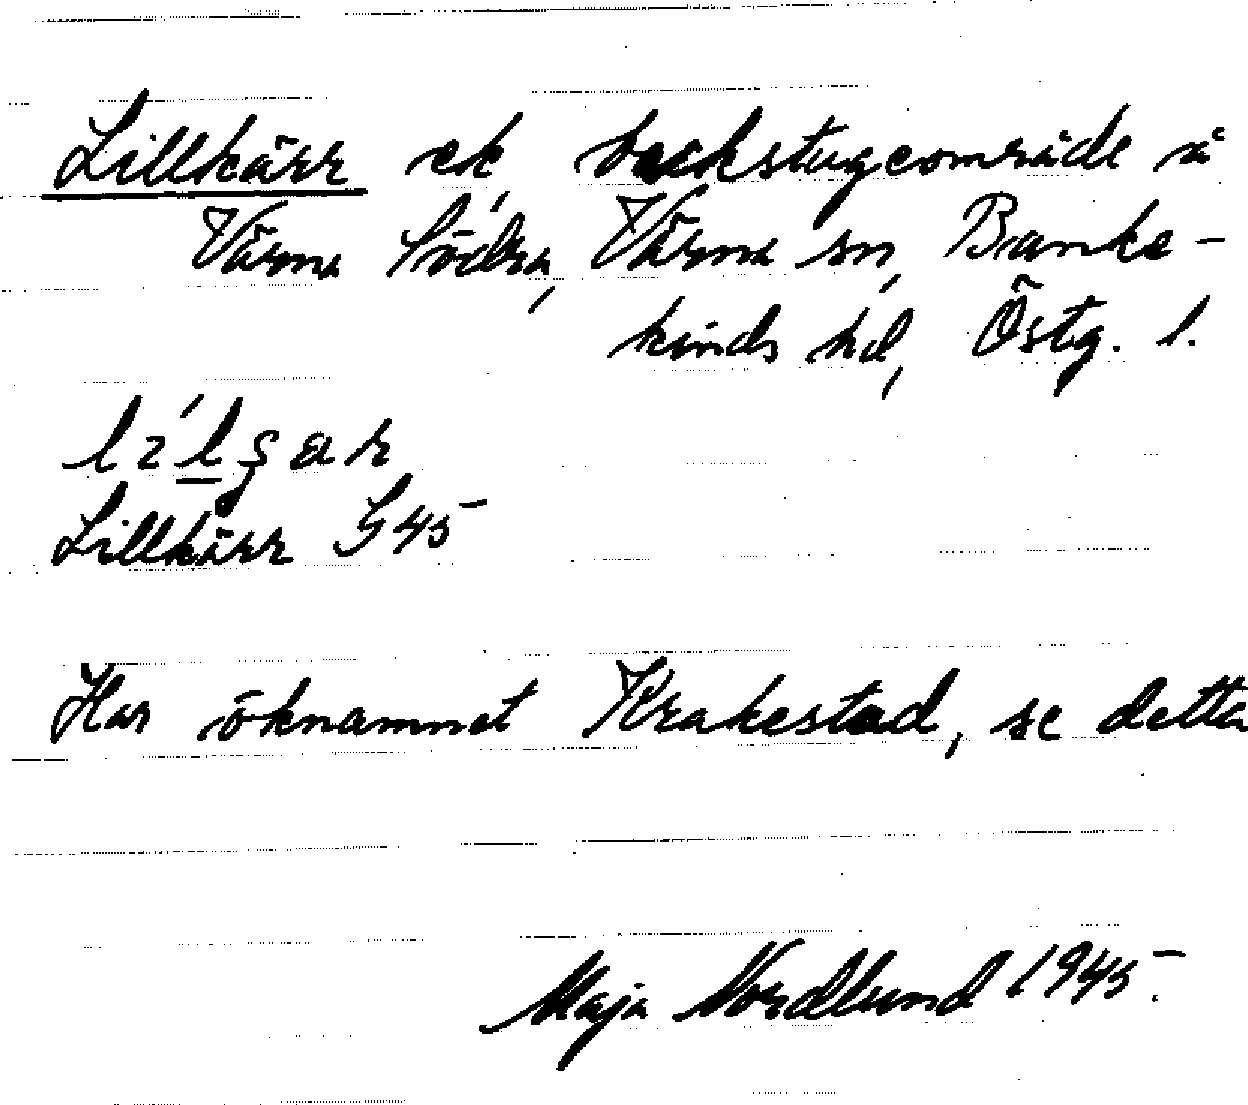 Lillkärr ek, backstugeområde å
Värna Södra, Värna sn, Banke-
kinds hd, Östg. l.
Lillkärr G45
Har öknamnet Krakestad, se detta
Maja Nordlund 1945.